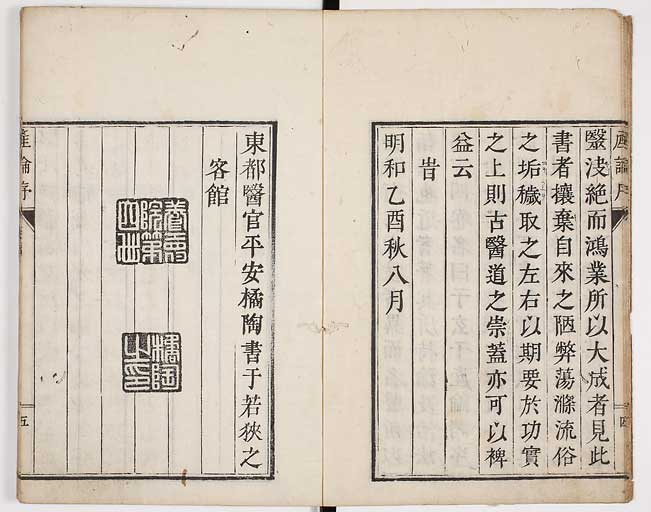 毉泼絶而鴻業所以大成者見此
書者攘棄自來之陋弊蕩滌流俗
之垢穢取之左右以期要於功實
之上則古醫道之崇蓋亦可以裨
益云
旹
明和乙酉秋八月
東都醫官平安橘陶書于若狹之
客館
橘陶
之印
產論序
五